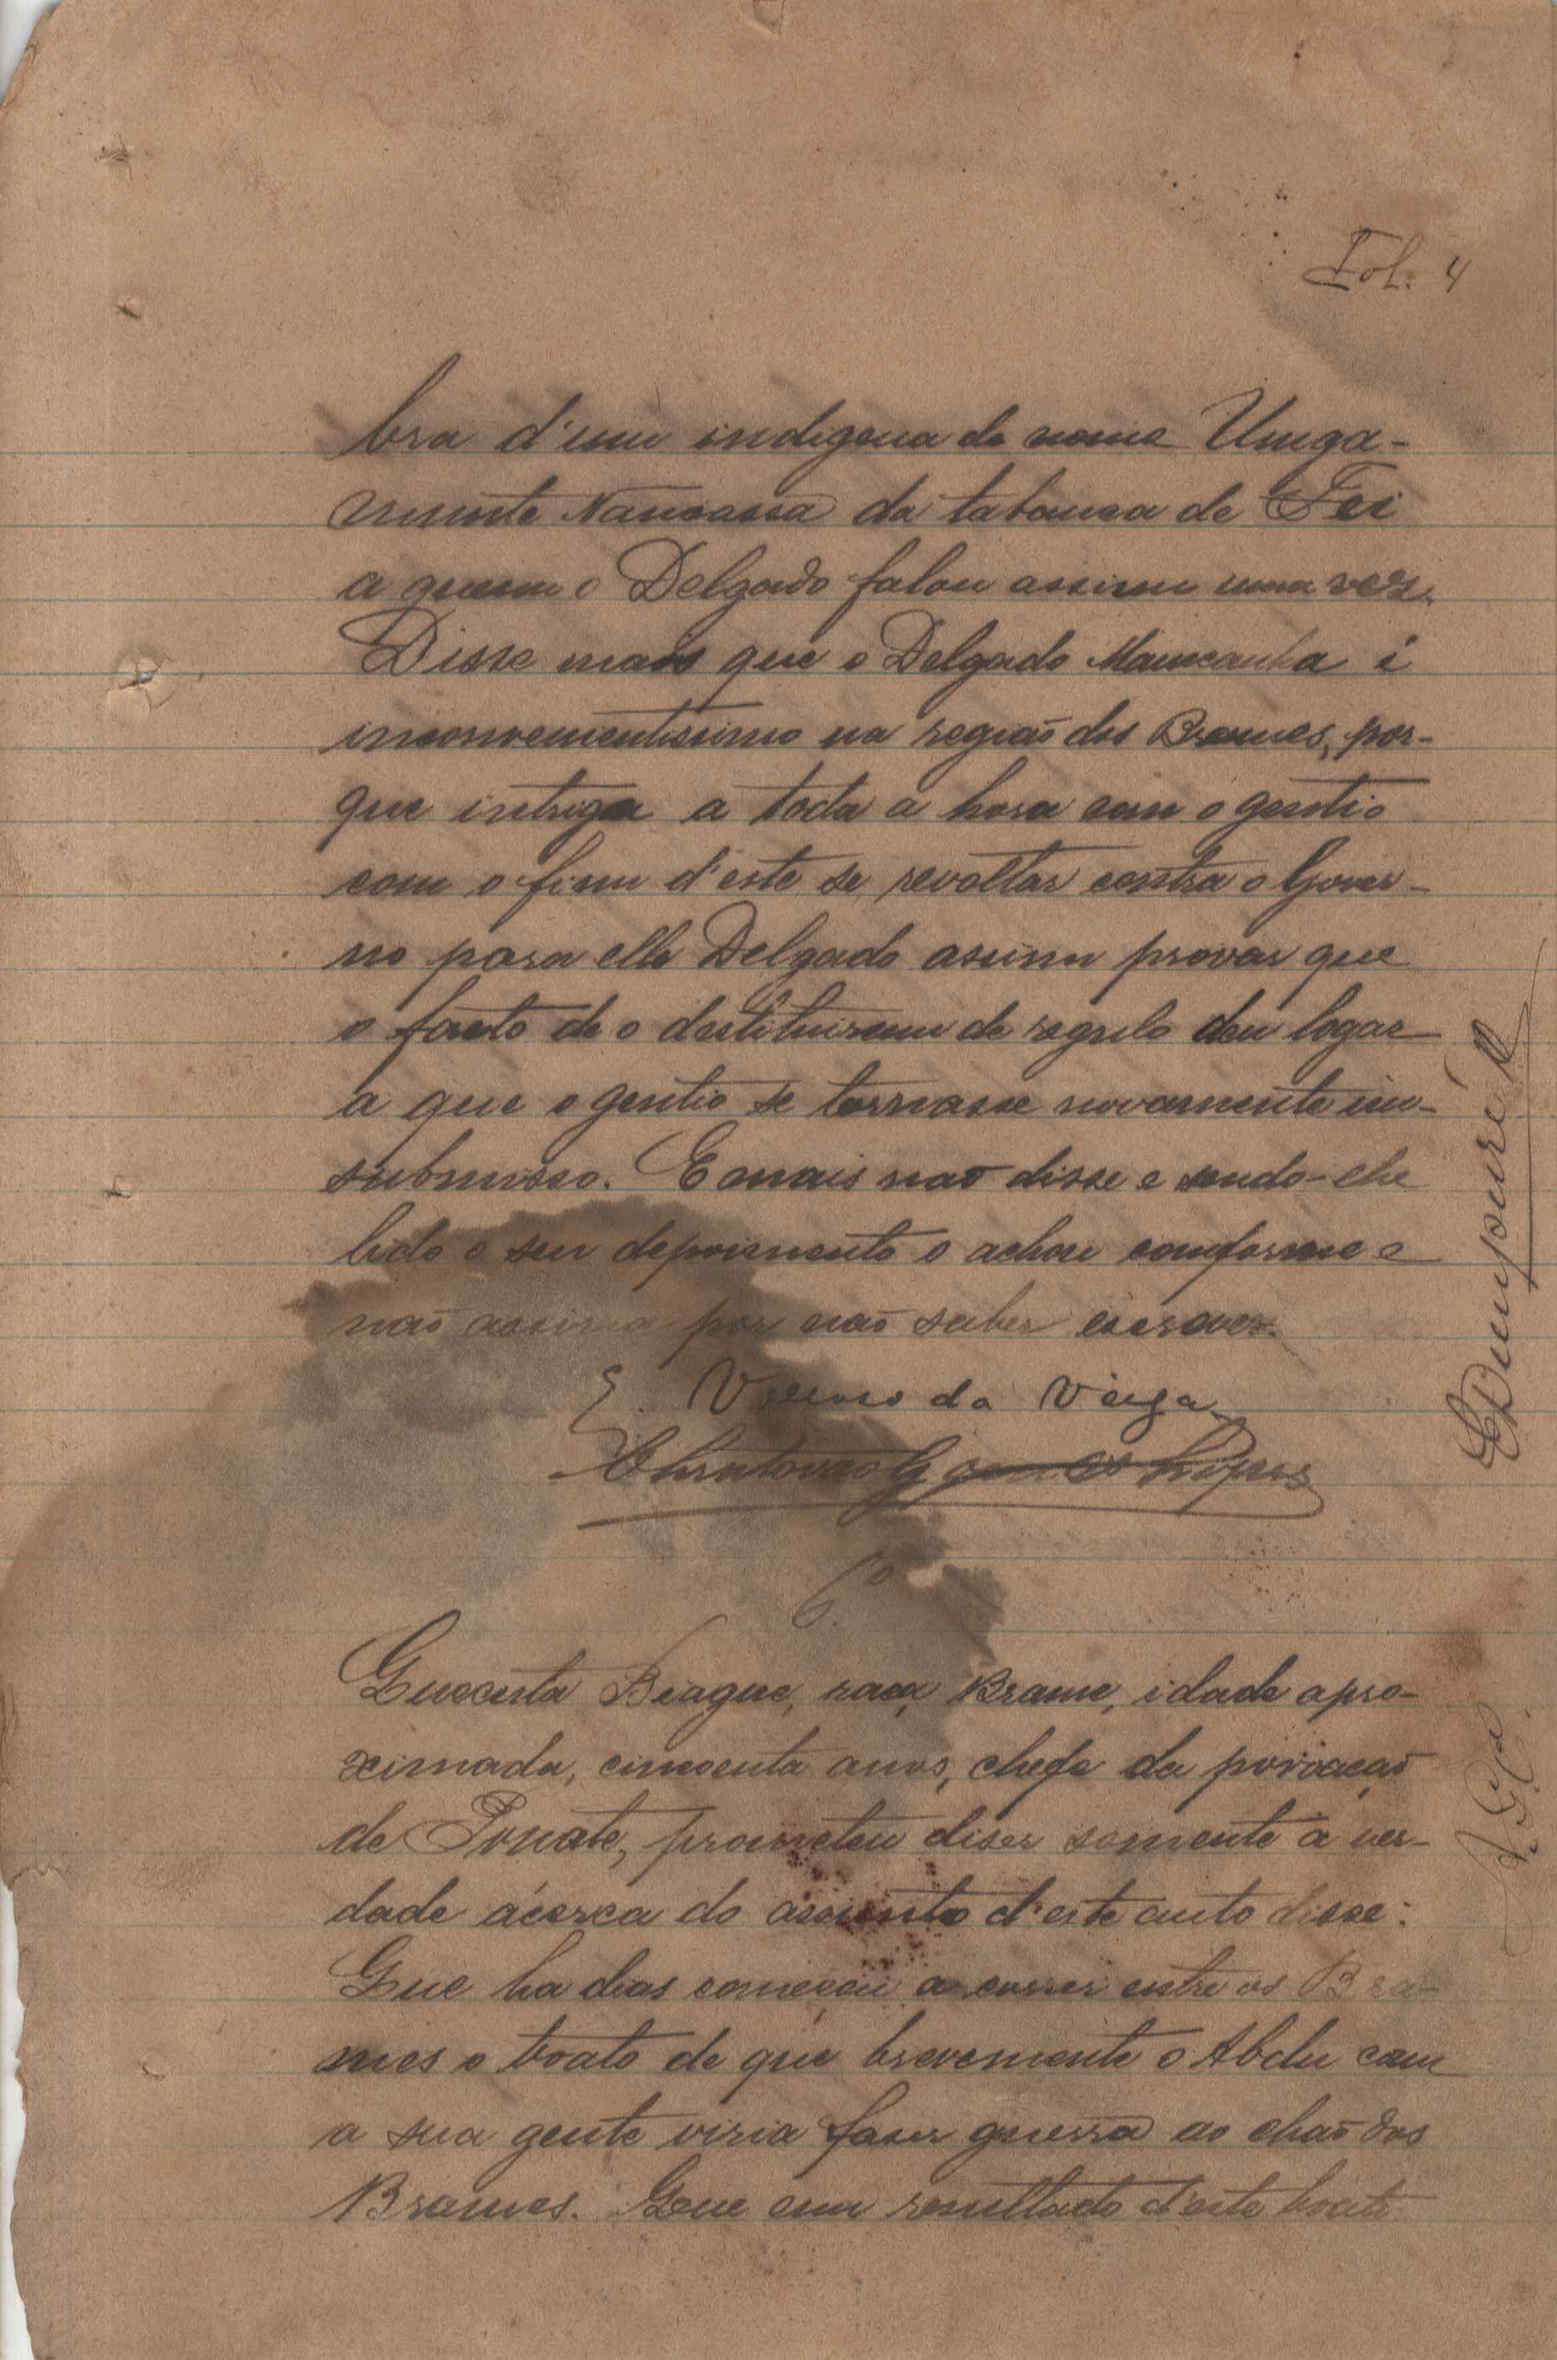 Fol. 4
bra d'um indigena de nome Unga-
Nancassa da tabanca de Fei
a quem o Delgado falou assim uma vez.
Disse mais que o Delgado Mamcanha é
inconvenientissimo na região dos Brames, por-
que intriga a toda a hora com o gentio
com o fim d'este se revoltar contra o Gover-
no para elle Delgado assim provar que
o facto de o destituirem de regulo deu logar
a que o gentio se tornasse novamente in-
submisso. E mais não disse e sendo-lhe
lido o seu depoimento o achou conforme e
não assina por não saber escrever.
E. da Veiga
Christovão Gomes Lopes
6.º
Quecuta Biague, raça, Brame, idade apro-
ximada, cincoenta anos, chefe da povoação
de Ponate, prometeu diser somente a ver-
dade ácerca do assunto d'este auto disse:
Que ha dias começou a correr entre os Bra-
mes o boato de que brevemente o Abdu com
a sua gente viria faser guerra ao chão dos
Brames. Que em resultado d'este boato